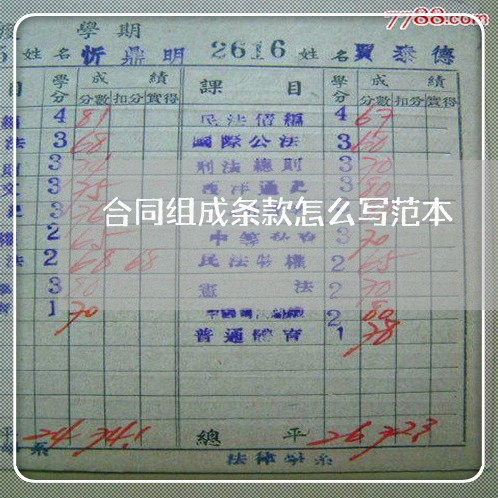 7788.com
學期
姓名 忻鼎明 2616 姓名 賈泰德
目 學分 成績 課目 學分 成績
分數 扣分 實得 分數 扣分 實得
4 81 民法債編 4 67
法 3 68 國際公法 3 60
3 刑法總則 3 70
3 75 西洋通史 3 80
合同组成条款怎么写范本
2 65 3 70
法 2 68 68 民法物權 2 65
3 80 憲法 2 70
1 70 2 80
普通體育 1 78
平 24 74.1 總平 26 72.3
系 法律學系